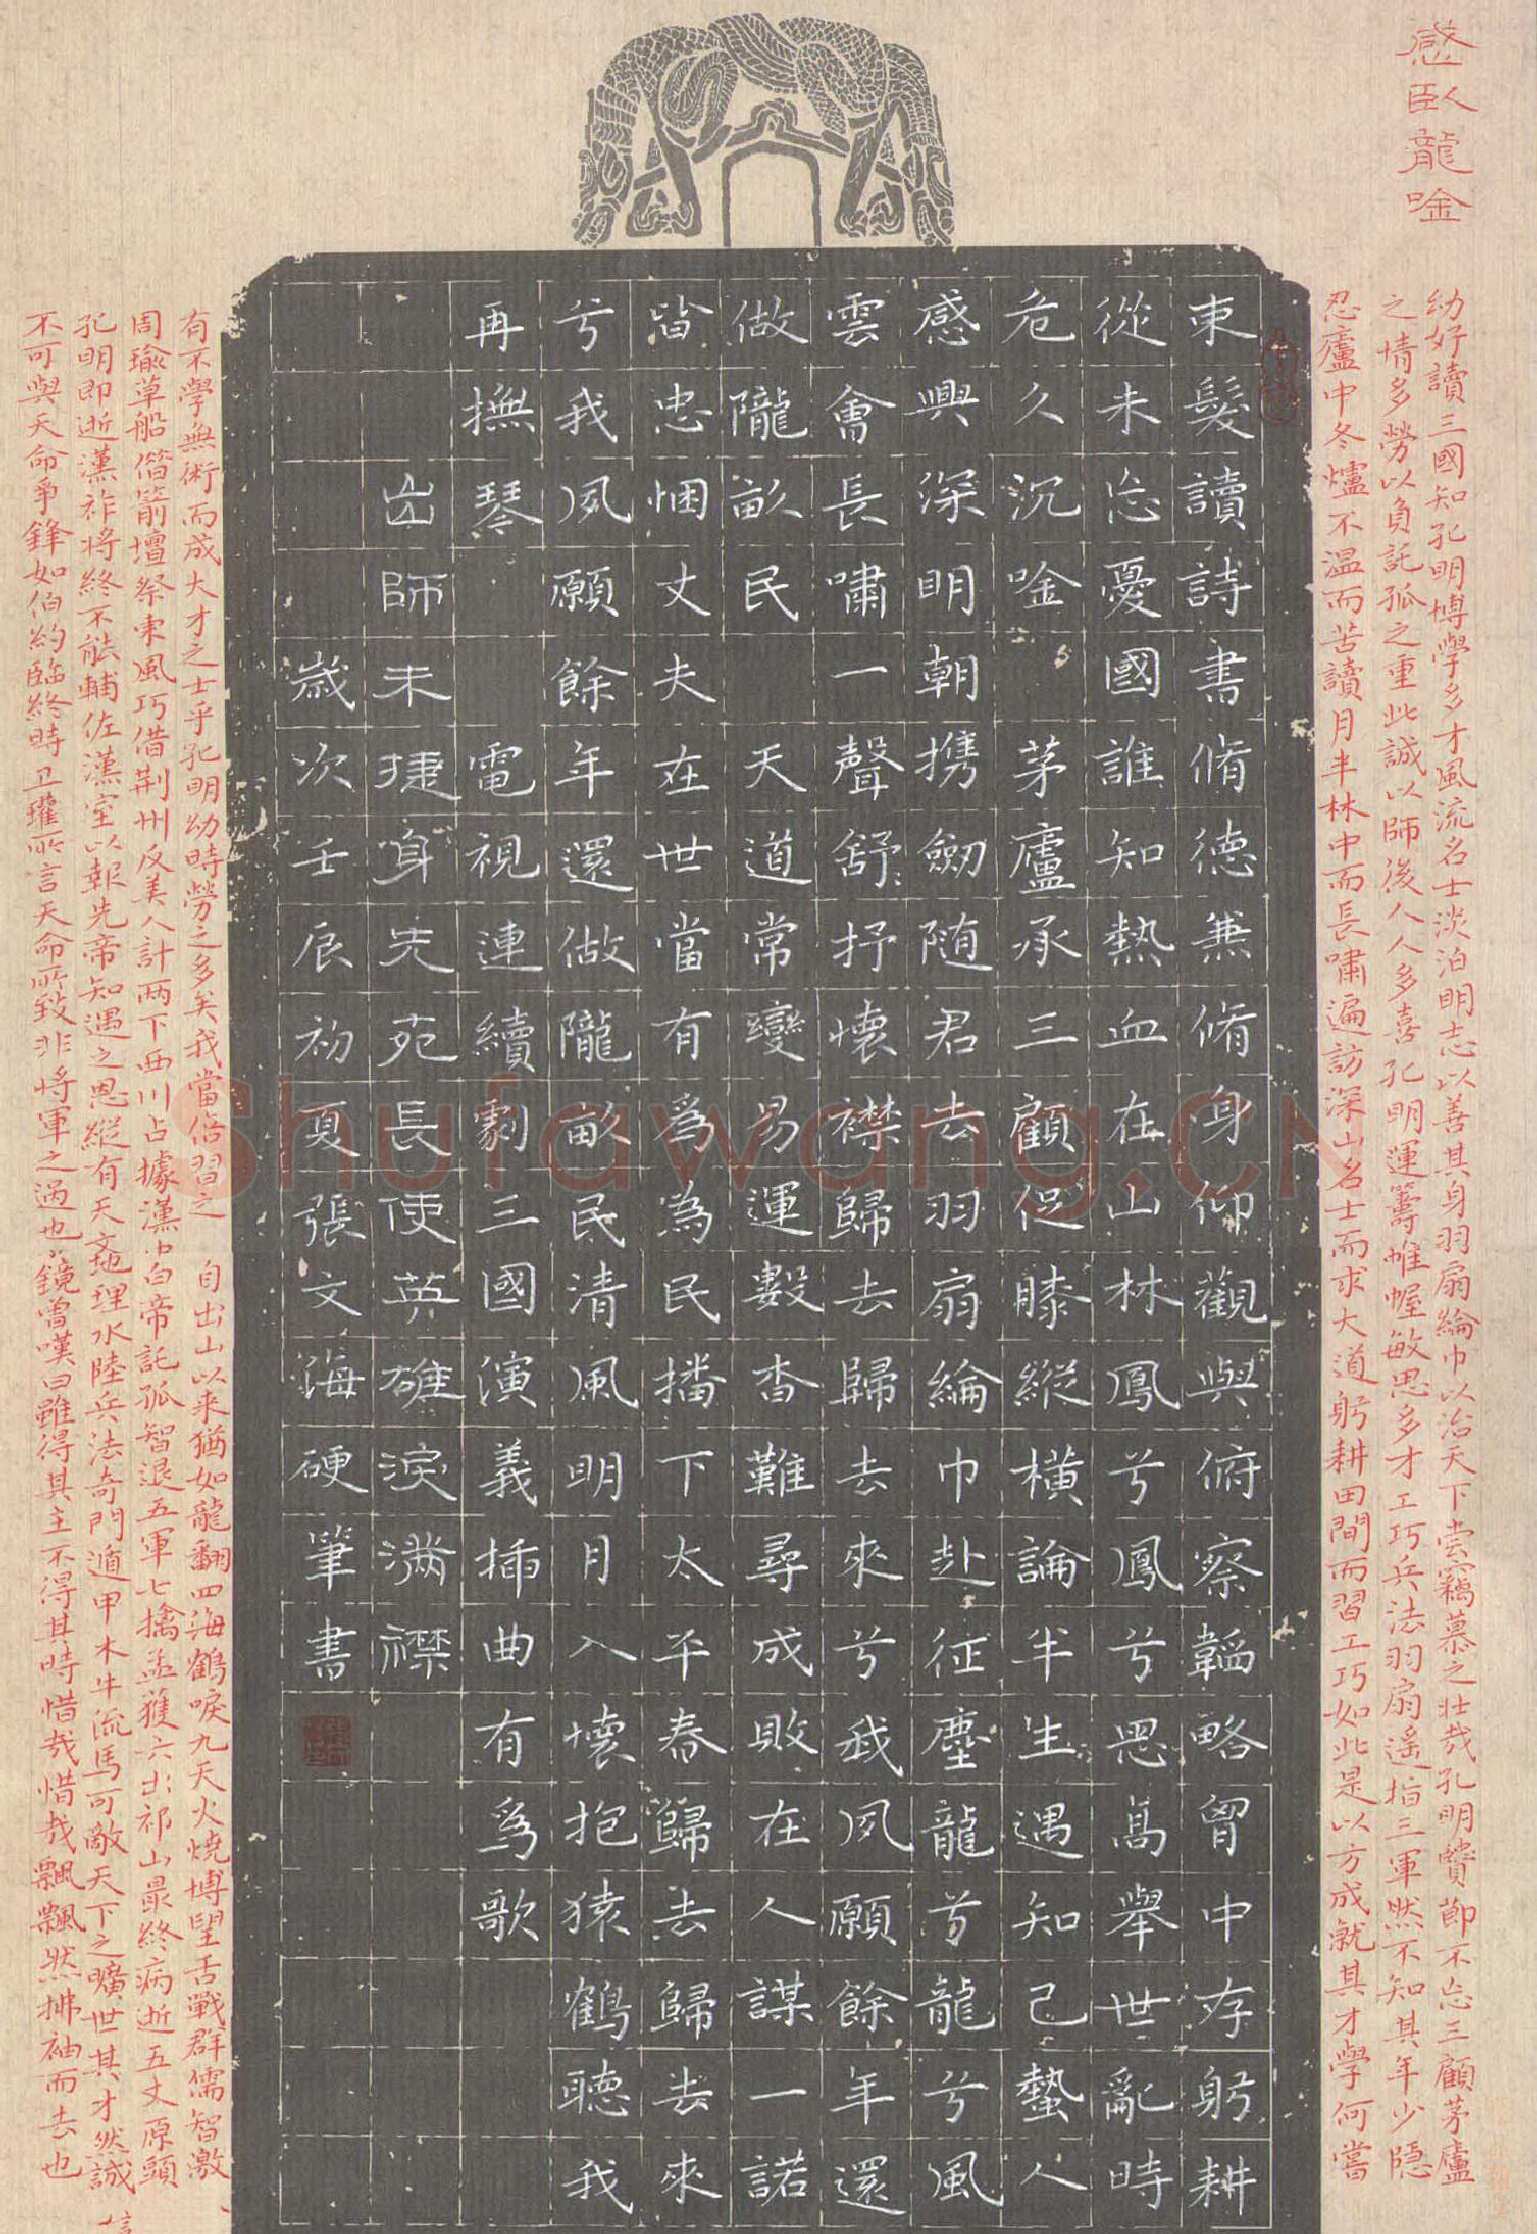 感臥龍唫
幼好讀三國知孔明博學多才風流名士淡泊明志以善其身羽扇綸巾以治天下嘗竊慕之壯哉孔明贊節不忘三顧茅廬
之情多勞以負託孤之重此誠以師後人人多喜孔明運籌帷幄敏思多才工巧兵法羽扇遥指三軍然不知其年少隱
忍廬中冬爐不温而苦讀月半林中而長嘯遍訪深山名士而求大道躬耕田間而習工巧如此是以方成就其才學何嘗
束髮讀詩書脩德兼脩身仰觀與俯察韜略胷中存躬耕
從未忘憂國誰知熱血在山林鳳兮鳳兮思高舉世亂時
危久沉唫 茅廬承三顧促膝縱橫論半生遇知己蟄人
感興深明朝携劒随君去羽扇綸巾赴征塵龍兮龍兮風
雲會長嘯一聲舒抒懷襟歸去歸去來兮我夙願餘年還
做隴畝民 天道常變易運數杳難尋成敗在人謀一諾
皆忠悃丈夫在世當有爲為民播下太平春歸去歸去來
兮我夙願餘年還做隴畝民清風明月入懷抱猿鶴聽我
再撫琴 電視連續劇三國演義插曲有爲歌
出師未捷身先死長使英雄淚滿襟
歲次壬辰初夏張文海硬筆書
有不學無術而成大才之士乎孔明幼時勞之多矣我當倍習之 自出山以来猶如龍翻四海鶴唳九天火燒博望舌戰群儒智激
周瑜草船借箭壇祭東風巧借荆州反美人計两下西川占據漢中白帝託孤智退五軍七擒孟獲六出祁山最終病逝五丈原頭
孔明即逝漢祚將終不能輔佐漢室以報先帝知遇之恩縱有天文地理水陸兵法奇門遁甲木牛流馬可敵天下之曠世其才然誠
不可與天命爭鋒如伯約臨終時卫瓘所言天命所致非將軍之過也水鏡曾嘆曰雖得其主不得其時惜哉惜哉飄飄然拂袖而去也
Shufawang.CN